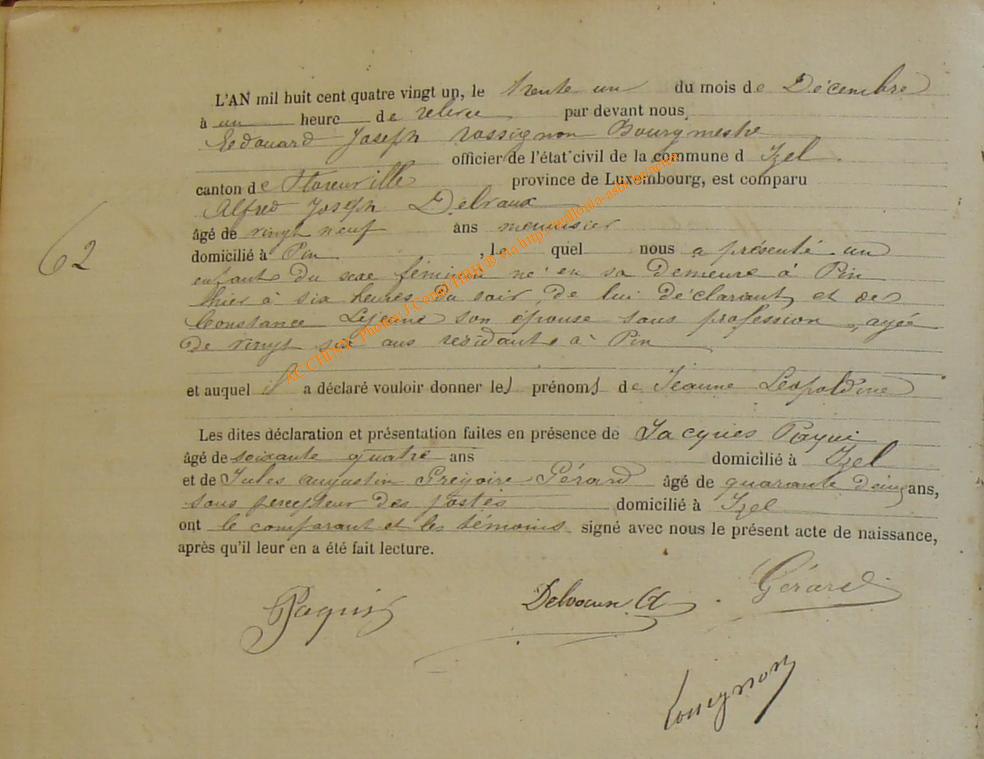 L'AN mil huit cent quatre vingt un, le trente un du mois de Décembre
à un heure de relevée par devant nous
Edouard Joseph Rossignon Bourgmestre
officier de l'état civil de la commune d Izel.
canton de Florenville province de Luxembourg, est comparu
Alfred Joseph Delvaux
âgé de vingt neuf ans menuisier
domicilié à Pin, le quel nous a présenté un
enfant du sexe féminin né en sa demeure à Pin
hier à six heures du soir, de lui déclarant et de
Constance Lejeune son épouse sans profession, agée
de vingt six ans residante à Pin
62
et auquel il a déclaré vouloir donner les prénoms de Jeanne Léopoldine
Les dites déclaration et présentation faites en présence de Jacques Paquis
âgé de soixante quatre ans domicilié à Izel
et de Jules augustin Grégoire Gérard âgé de quarante deux ans,
sous percepteur des postes domicilié à Izel
ont le comparant et les témoins signé avec nous le présent acte de naissance,
après qu'il leur en a été fait lecture.
Paquis Delvaux A. Gérard
Rossignon